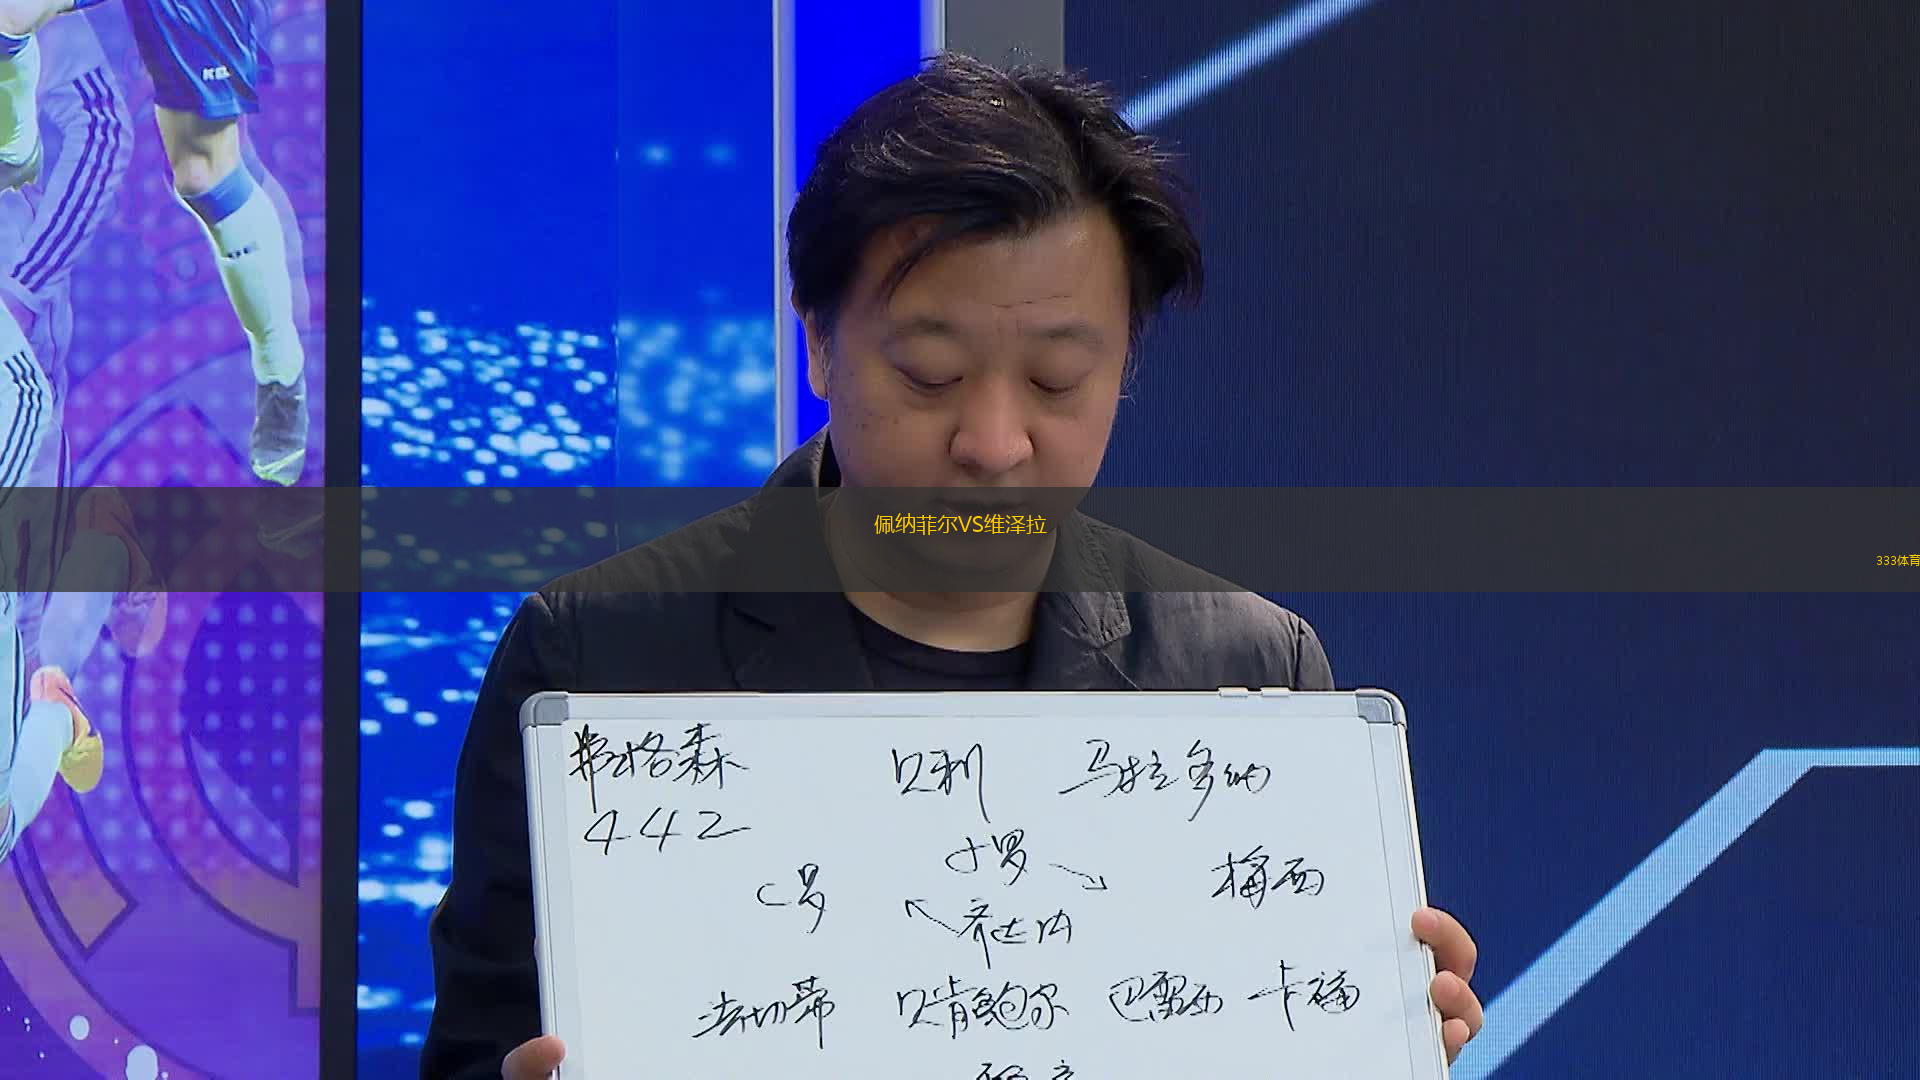 佩纳菲尔VS维泽拉
333体育
弗格森 贝利 马拉多纳
442
小罗
C罗 梅西
齐达内
法切蒂 贝肯鲍尔 巴雷西 卡福